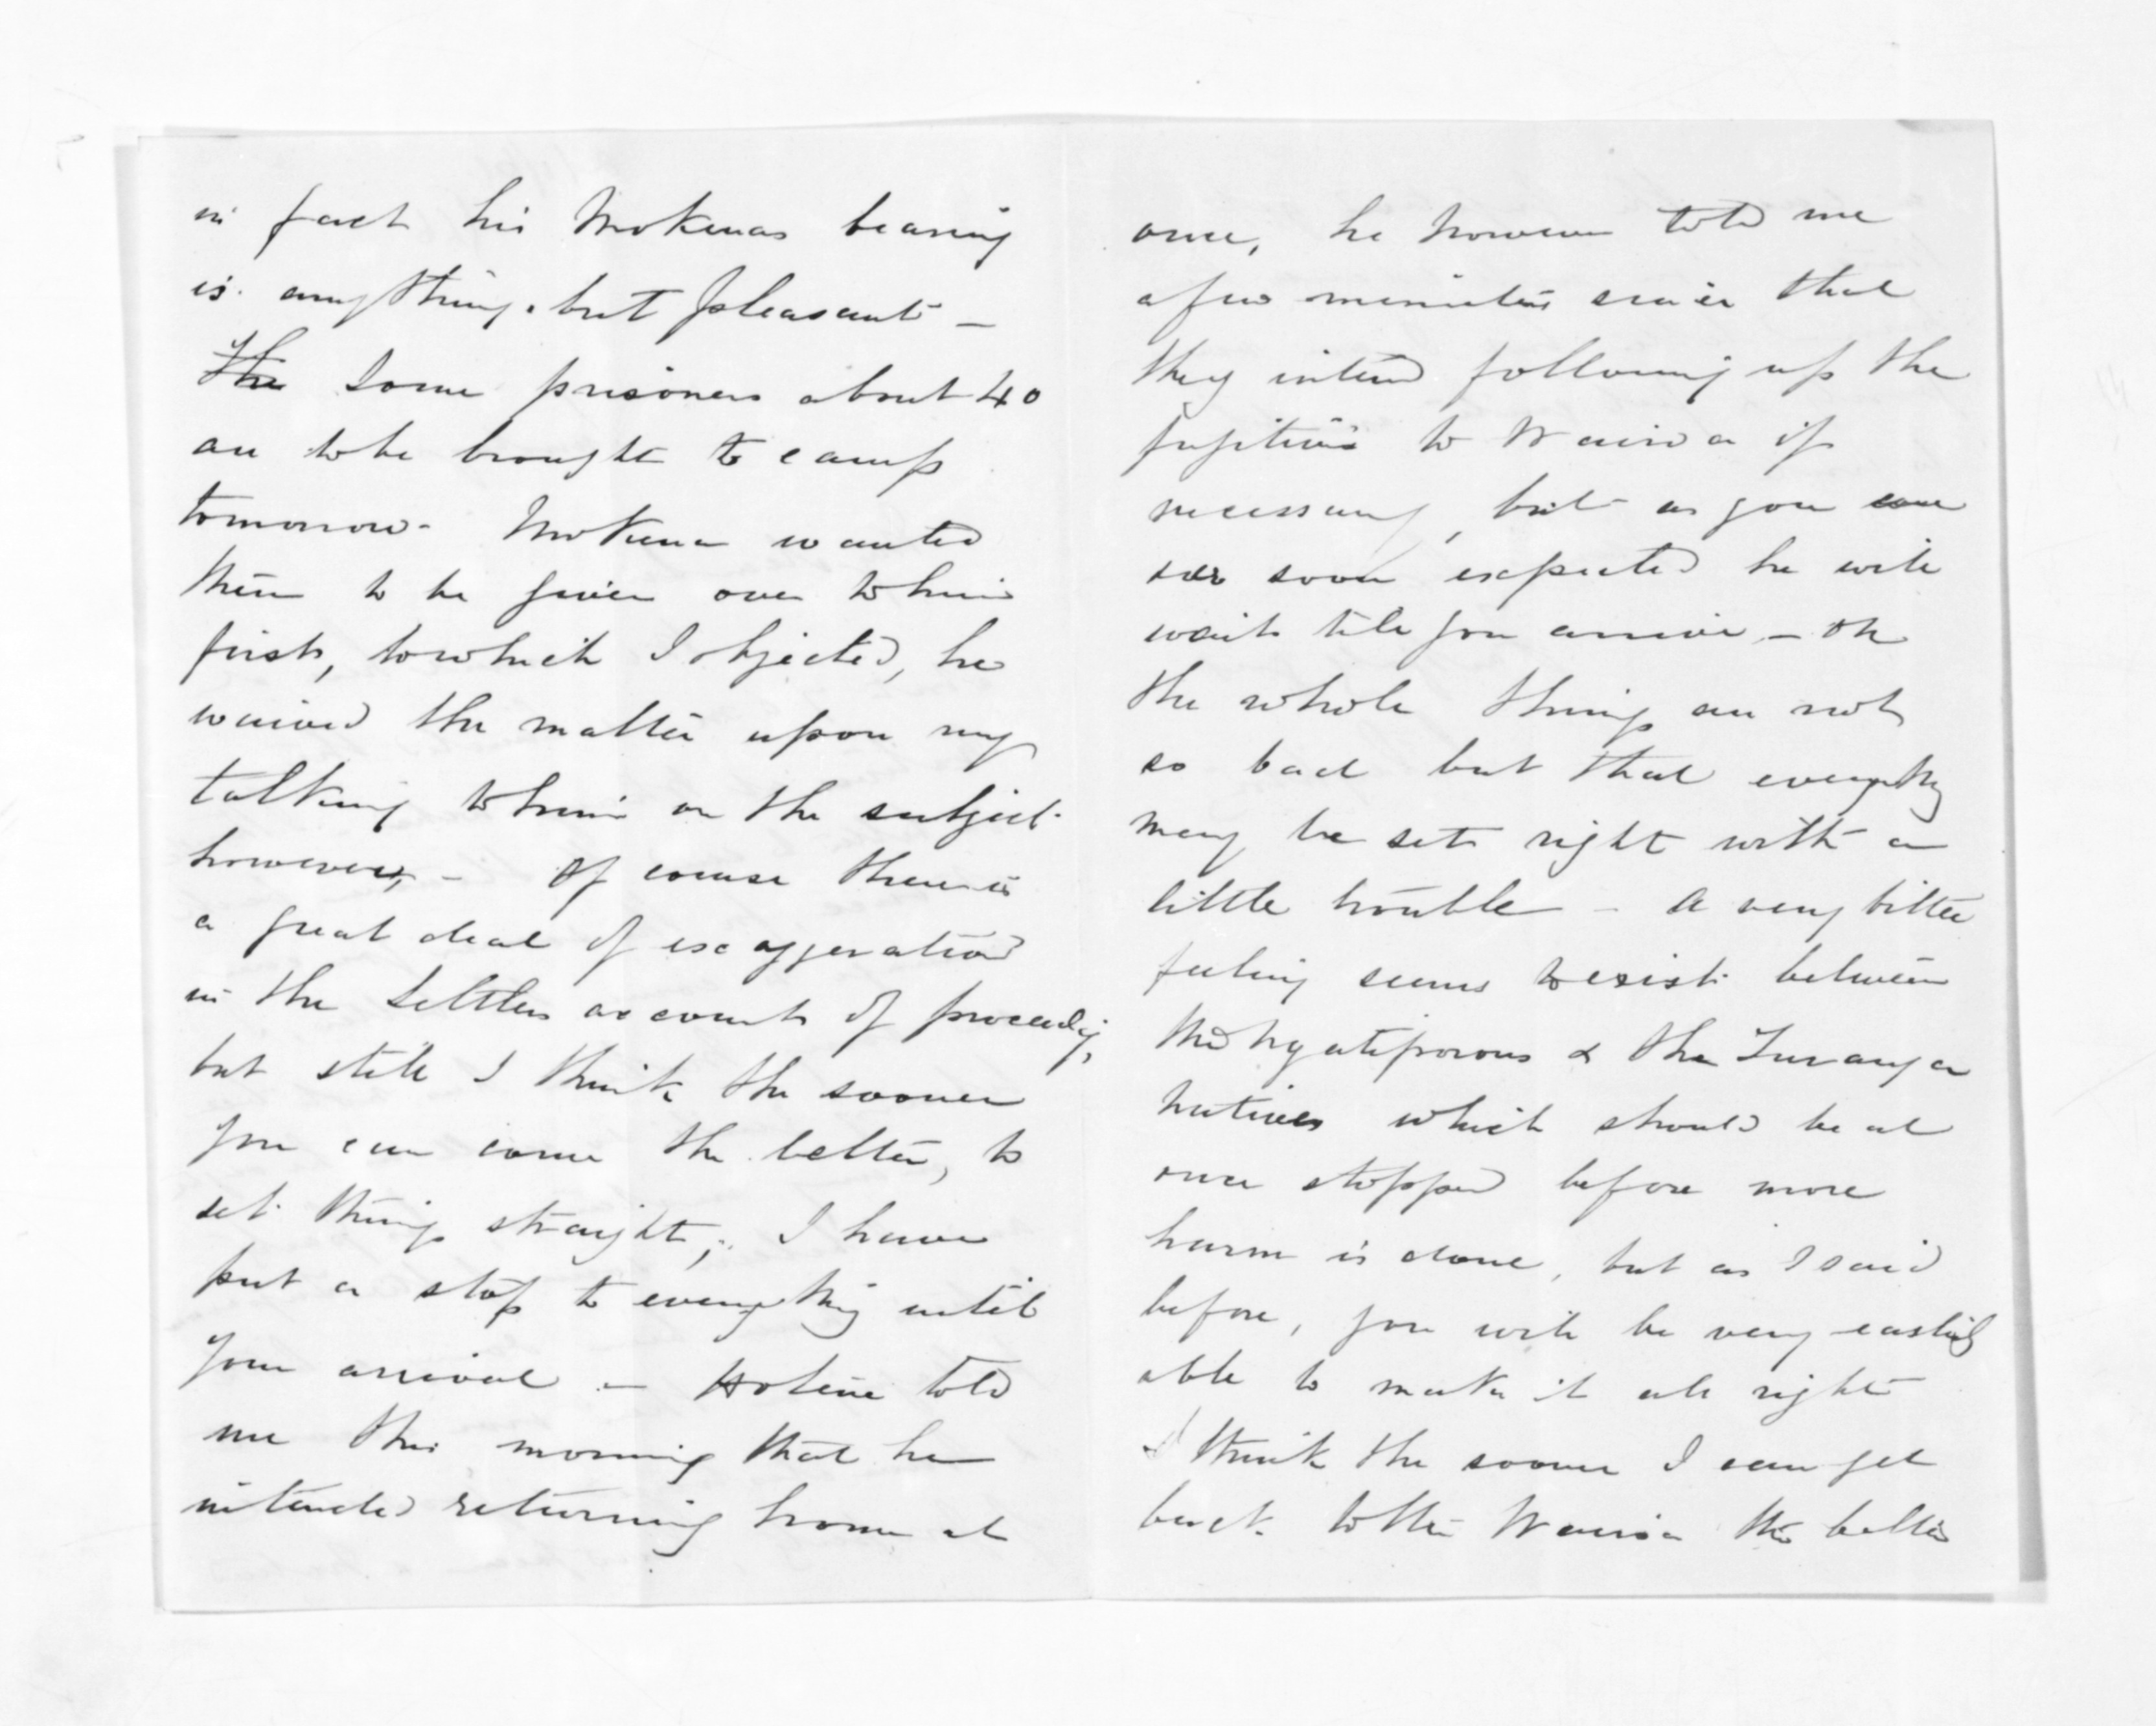 in fact his Mokenas bearing
is anything but pleasant –
The Some prisoners about 40
are to be brought to camp
tomorrow – Mokena wanted
them to be given over to him
first, to which I objected, he
waived the matter upon my
talking to him on the subject
however, – Of course there is
a great deal of exaggeration
in the Settlers accounts of proceedgs,
but still I think the sooner
you can come the better, to
set things straight; I have
put a stop to everything until
your arrival – Hotene told
me this morning that he
intended returning home at
once, he however told me
a few minutes since that
they intend following up the
fugitives to Wairoa if
necessary, but as you are
so soon expected he will
wait till you arrive – On
the whole things are not
so bad but that everythg
may be set right with a
little trouble – A very bitter
feeling seems to exist between
the Ngatiporous & the Turanga
Natives which should be at
once stopped before more
harm is done, but as I said
before, you will be very easily
able to make it all right
I think the sooner I can get
back to the Wairoa the better